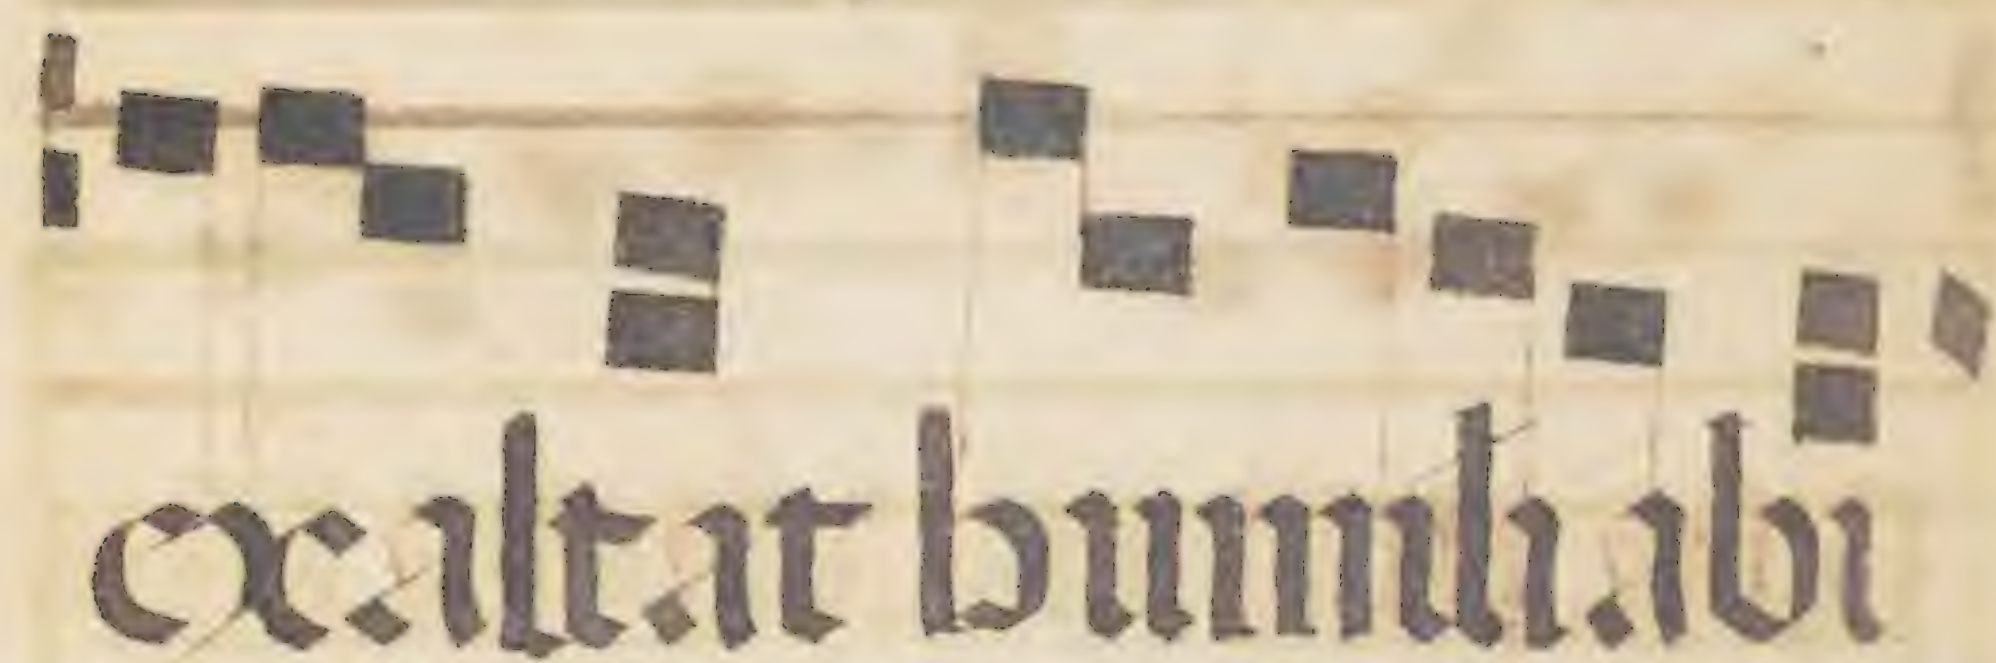 exaltat humiliabi